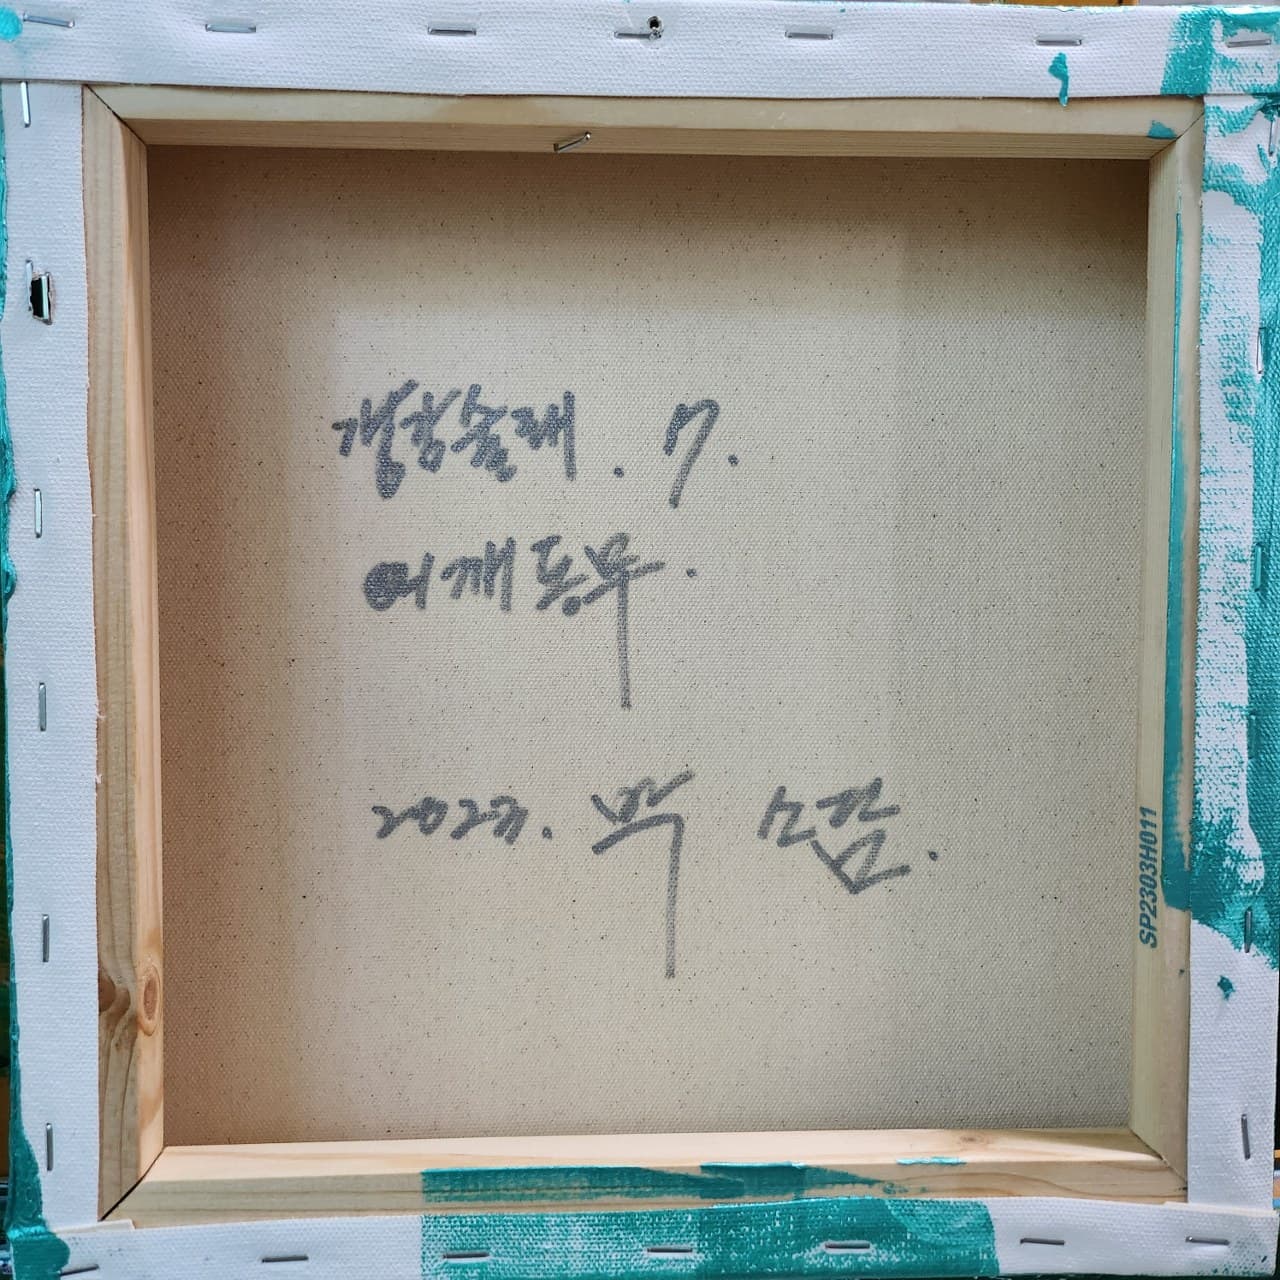 강강술래. 7.
어깨동무.
2023. 박
SP2303H011